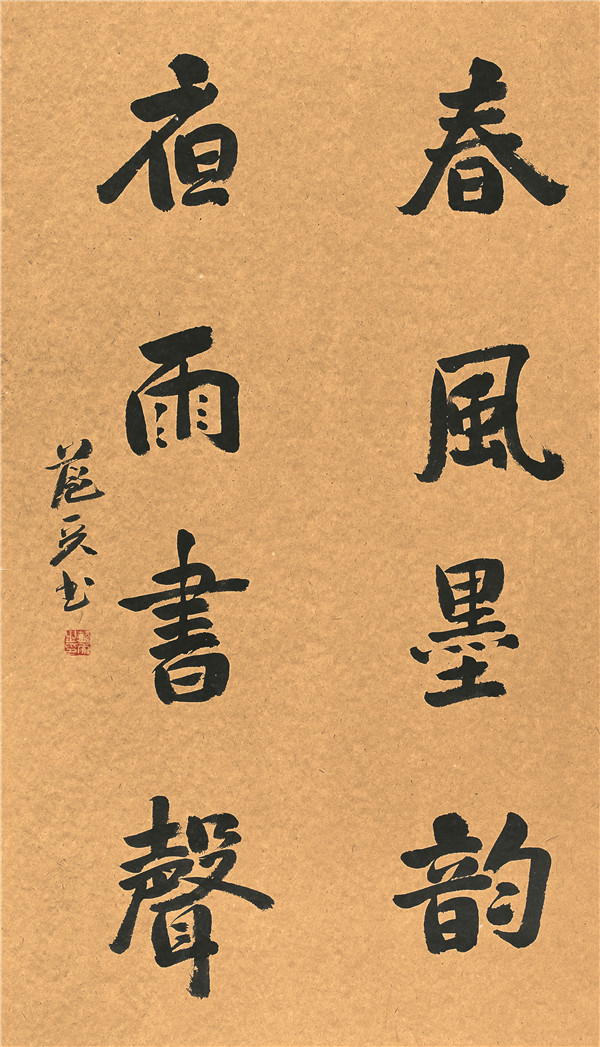 春風墨韵
夜雨書聲
书